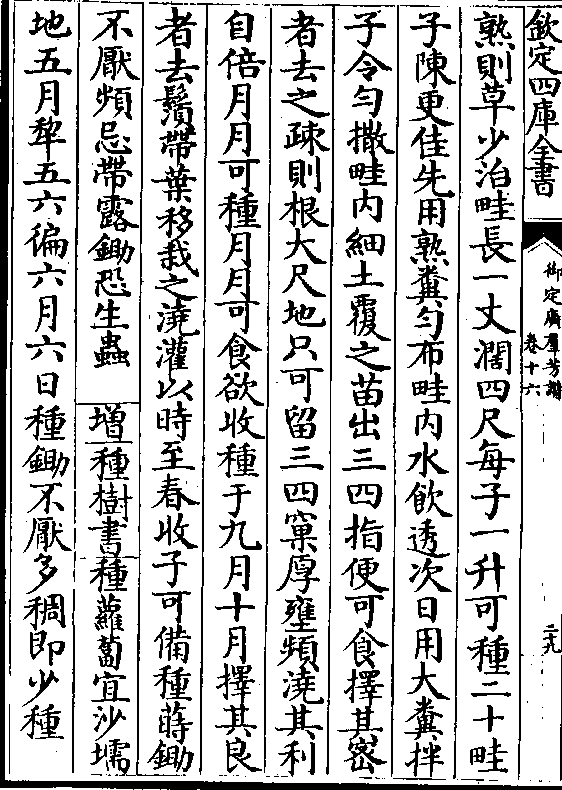 欽定四庫全書
御定廣羣芳譜
卷十六
二十九
熟則草少治畦長一丈濶四尺每子一升可種二十畦
子陳更佳先用熟糞勻布畦内水飲透次日用大糞拌
子令勻撒畦内細土覆之苗出三四指便可食擇其密
者去之疎則根大尺地只可留三四窠厚壅頻澆其利
自倍月月可種月月可食欲收種于九月十月擇其良
者去鬚帶葉移栽之澆灌以時至春收子可備種蒔鋤
不厭頻忌帶露鋤恐生蟲　增種樹書種蘿蔔宜沙壖
地五月犂五六徧六月六日種鋤不厭多稠即少種